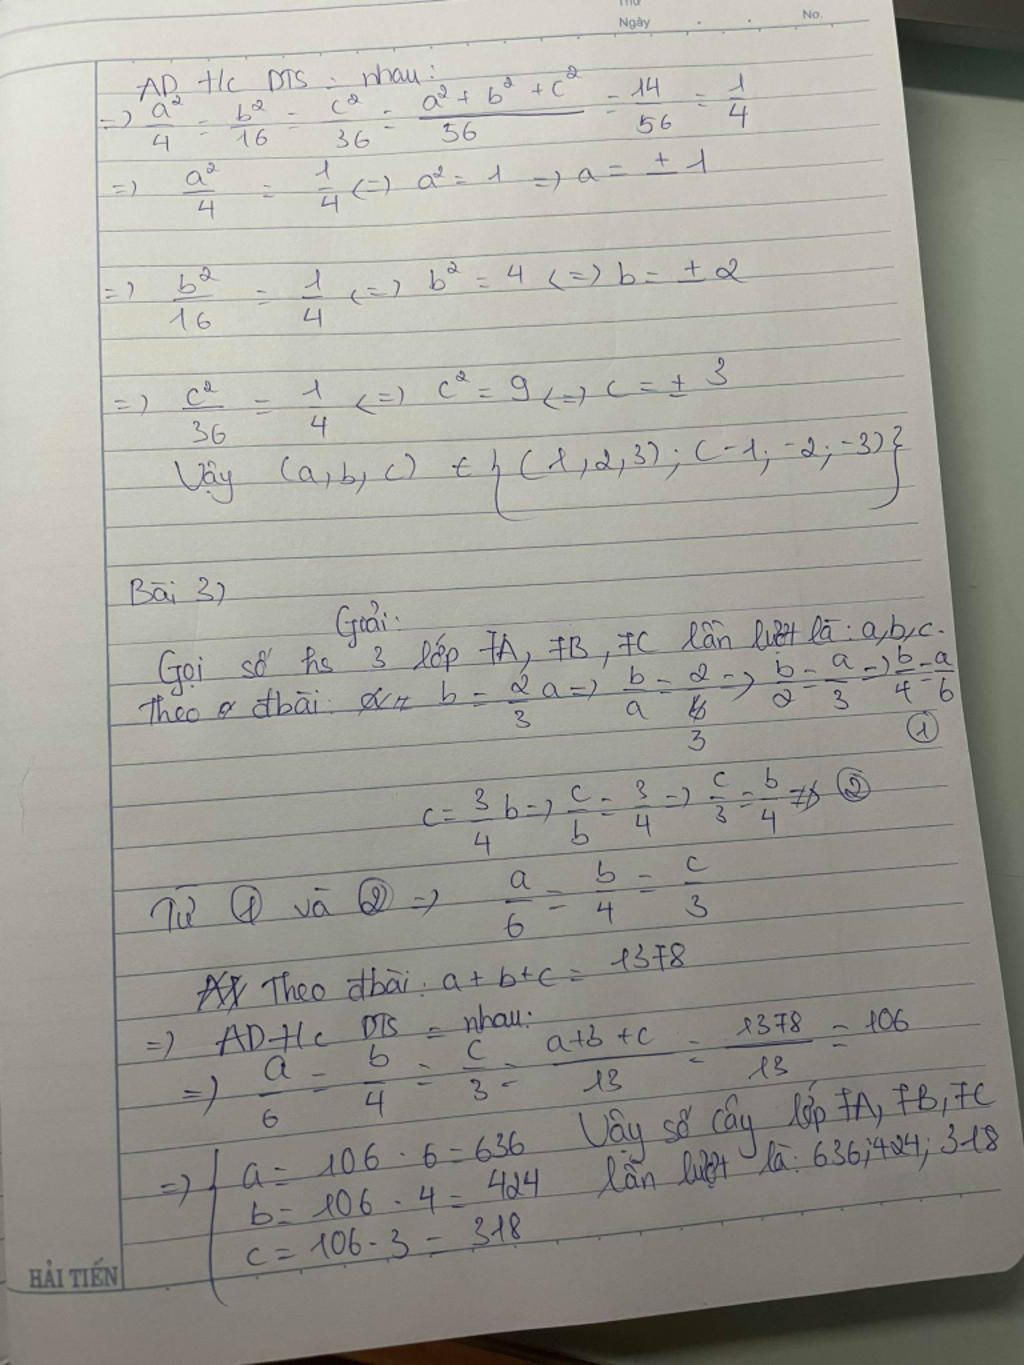 Thứ
Ngày . . No.
AD t/c DTS = nhau:
=> a²/4 = b²/16 = c²/36 = (a² + b² + c²)/56 = 14/56 = 1/4
=> a²/4 = 1/4 <=> a² = 1 => a = ± 1
=> b²/16 = 1/4 <=> b² = 4 <=> b = ± 2
=> c²/36 = 1/4 <=> c² = 9 <=> c = ± 3
Vậy (a, b, c) ∈ { (1, 2, 3); (-1; -2; -3) }
Bài 3)
Giải:
Gọi số hs 3 lớp 7A, 7B, 7C lần lượt là: a, b, c.
Theo đbài: b = 2/3 a => b/a = 2/3 => b/2 = a/3 => b/4 = a/6
①
c = 3/4 b => c/b = 3/4 => c/3 = b/4 ②
Từ ① và ② => a/6 = b/4 = c/3
Theo đbài: a + b + c = 1378
=> AD t/c DTS = nhau:
=> a/6 = b/4 = c/3 = (a + b + c)/13 = 1378/13 = 106
=> { a = 106 . 6 = 636 Vậy số cây lớp 7A, 7B, 7C
b = 106 . 4 = 424 lần lượt là: 636; 424; 318
c = 106 . 3 = 318
HẢI TIẾN